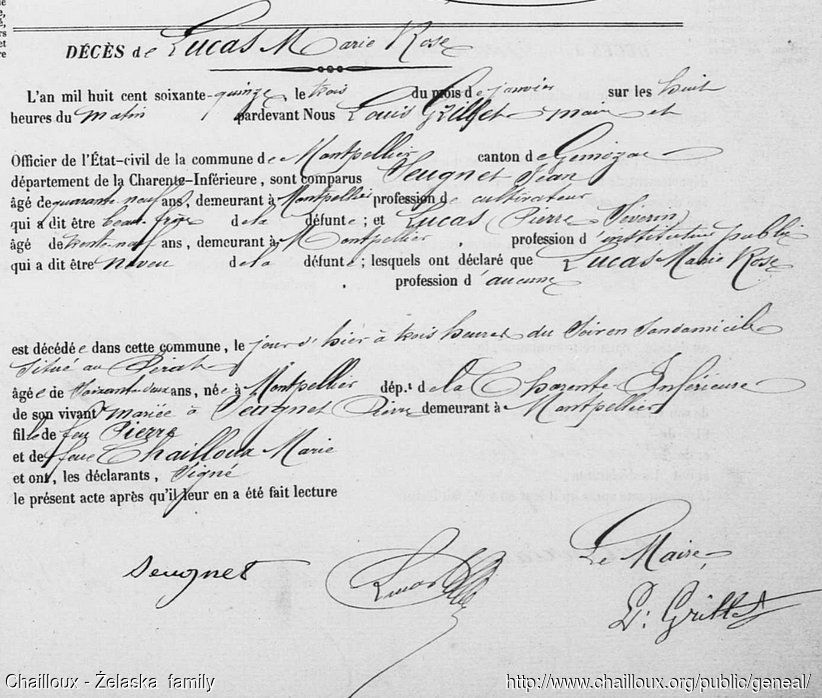 DÉCÈS de Lucas Marie Rose
L'an mil huit cent soixante-quinze, le trois du mois de janvier sur les huit
heures du matin pardevant Nous Louis Grillet maire et
Officier de l'État-civil de la commune de Montpellier canton de Gemozac
département de la Charente-Inférieure, sont comparus Seugnet Jean
âgé de quarante neuf ans, demeurant à Montpellier profession de cultivateur
qui a dit être beau-frère de la défunte; et Lucas (Pierre Séverin)
âgé de trente neuf ans, demeurant à Montpellier, profession d'instituteur public
qui a dit être neveu de la défunte; lesquels ont déclaré que Lucas Marie Rose
profession d'aucune
est décédée dans cette commune, le jour d'hier à trois heures du soir en son domicile
situé au
âgée de soixante deux ans, née à Montpellier dép.t de la Charente Inférieure
de son vivant mariée à Seugnet Pierre demeurant à Montpellier
fille de feu Pierre
et de feue Chailloux Marie
et ont, les déclarants, signé
le présent acte après qu'il leur en a été fait lecture
Seugnet
Lucas
Le Maire,
L. Grillet
Chailloux - Želaska family
http://www.chailloux.org/public/geneal/